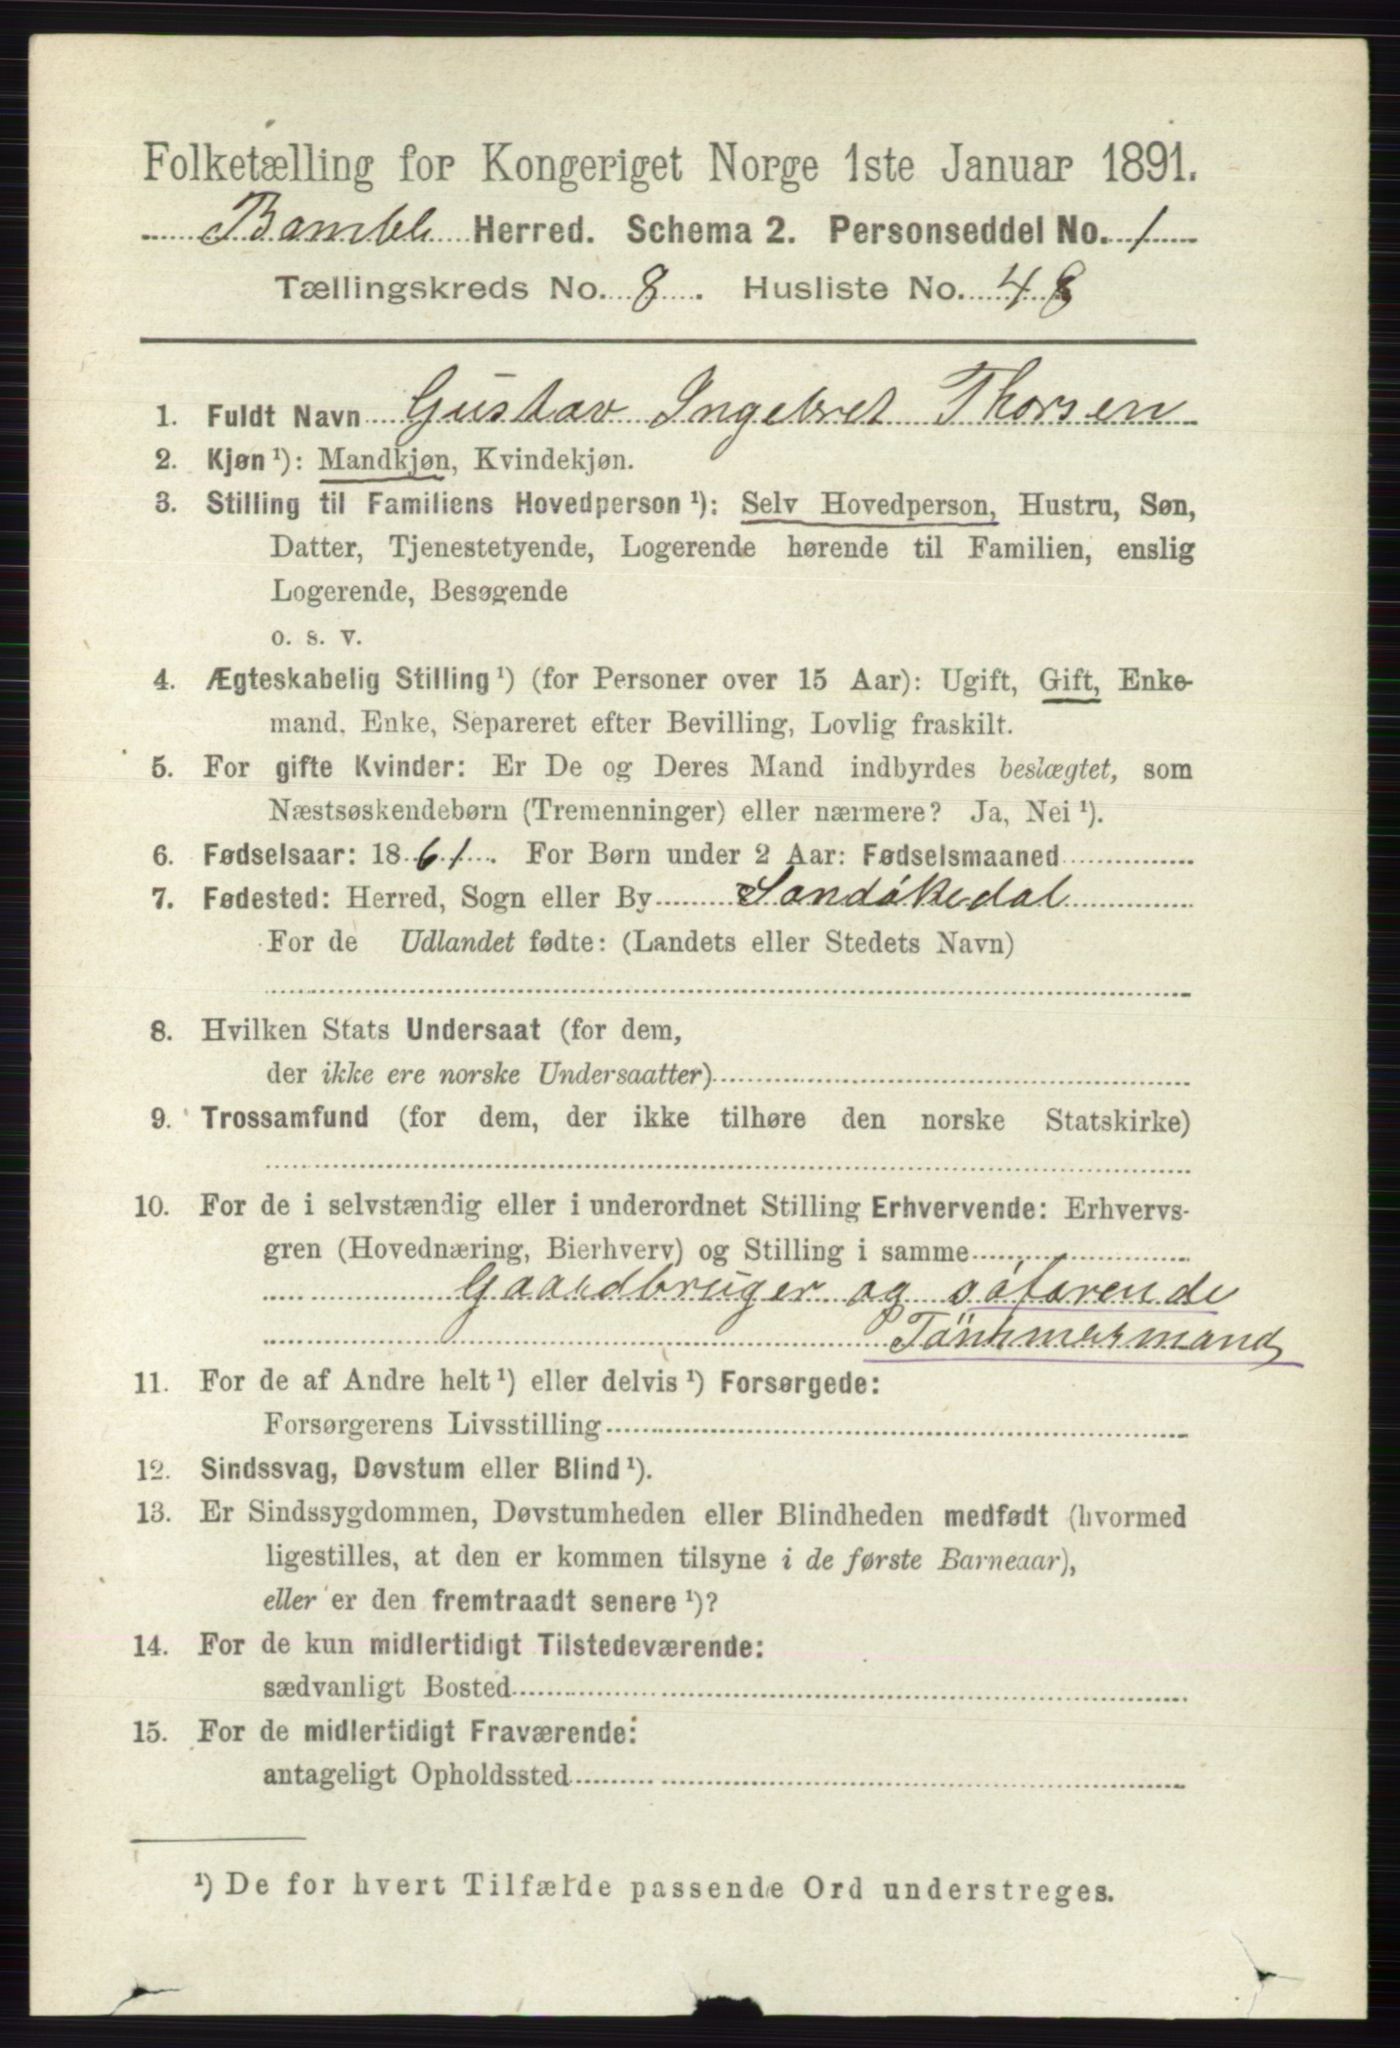 Folketælling for Kongeriget Norge 1ste Januar 1891.
Bamble Herred. Schema 2. Personseddel No. 1
Tællingskreds No. 8. Husliste No. 48
1. Fuldt Navn Gustav Ingebret Thorsen
2. Kjøn ¹): Mandkjøn, Kvindekjøn.
3. Stilling til Familiens Hovedperson ¹): Selv Hovedperson, Hustru, Søn,
Datter, Tjenestetyende, Logerende hørende til Familien, enslig
Logerende, Besøgende
o. s. v.
4. Ægteskabelig Stilling ¹) (for Personer over 15 Aar): Ugift, Gift, Enke-
mand, Enke, Separeret efter Bevilling, Lovlig fraskilt.
5. For gifte Kvinder: Er De og Deres Mand indbyrdes beslægtet, som
Næstsøskendebørn (Tremenninger) eller nærmere? Ja, Nei ¹).
6. Fødselsaar: 1861. For Børn under 2 Aar: Fødselsmaaned
7. Fødested: Herred, Sogn eller By Sandøkedal
For de Udlandet fødte: (Landets eller Stedets Navn)
8. Hvilken Stats Undersaat (for dem,
der ikke ere norske Undersaatter)
9. Trossamfund (for dem, der ikke tilhøre den norske Statskirke)
10. For de i selvstændig eller i underordnet Stilling Erhvervende: Erhvervs-
gren (Hovednæring, Bierhverv) og Stilling i samme
Gaardbruger og søfarende
Tömmermand
11. For de af Andre helt ¹) eller delvis ¹) Forsørgede:
Forsørgerens Livsstilling
12. Sindssvag, Døvstum eller Blind ¹).
13. Er Sindssygdommen, Døvstumheden eller Blindheden medfødt (hvormed
ligestilles, at den er kommen tilsyne i de første Barneaar),
eller er den fremtraadt senere ¹)?
14. For de kun midlertidigt Tilstedeværende:
sædvanligt Bosted
15. For de midlertidigt Fraværende:
antageligt Opholdssted
¹) De for hvert Tilfælde passende Ord understreges.